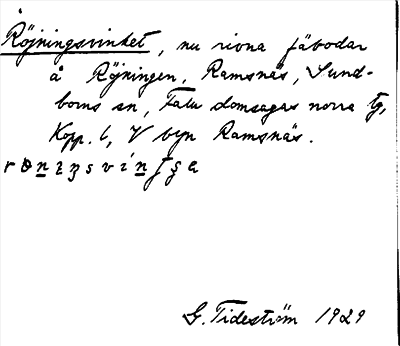 Röjningsvinket, nu rivna fäbodar
å Röjningen, Ramsnäs, Sund-
borns sn, Falu domsagas norra tg,
Kopp. l, V byn Ramsnäs.

G. Tideström 1929